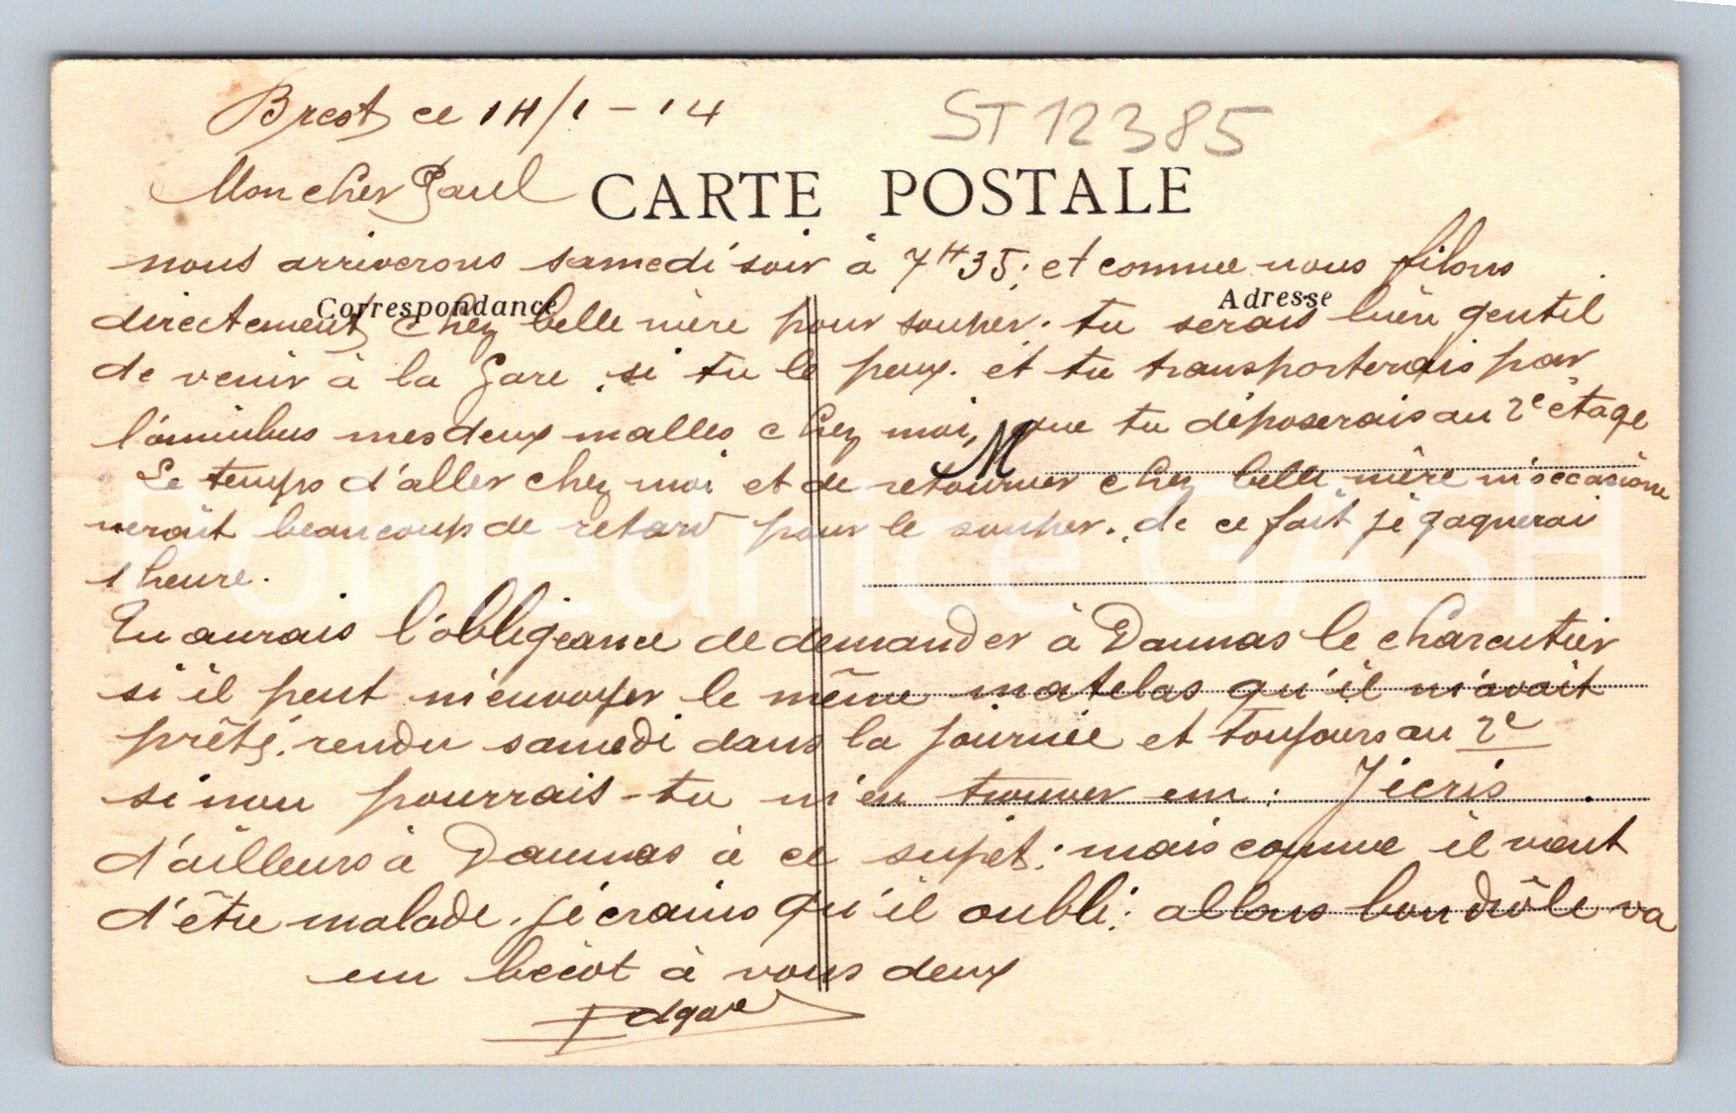 Brest ce 14/1-14
ST 12385
Mon cher Paul
CARTE POSTALE
nous arriverons samedi soir à 7H35; et comme nous filons
Correspondance
Adresse
directement chez belle mère pour souper. tu serais bien gentil
de venir à la gare, si tu le peux. et tu transporterais par
l'ominibus mes deux malles chez moi, que tu déposerais au 2e étage
M
Le temps d'aller chez moi et de retourner chez belle mère m'occasionne
nerait beaucoup de retard pour le souper. de ce fait je gagnerai
1 heure.
Tu aurais l'obligeance de demander à Daumas le charcutier
si il peut m'envoyer le même matelas qu'il m'avait
prêté. rendu samedi dans la journée et toujours au 2e
sinon pourrais-tu m'en trouver un. J'écris
d'ailleurs à Daumas à ce sujet: mais comme il vient
d'être malade. je crains qu'il oubli. allons bon drôle va
un bécot à vous deux
Edgar
Polledrice GASH